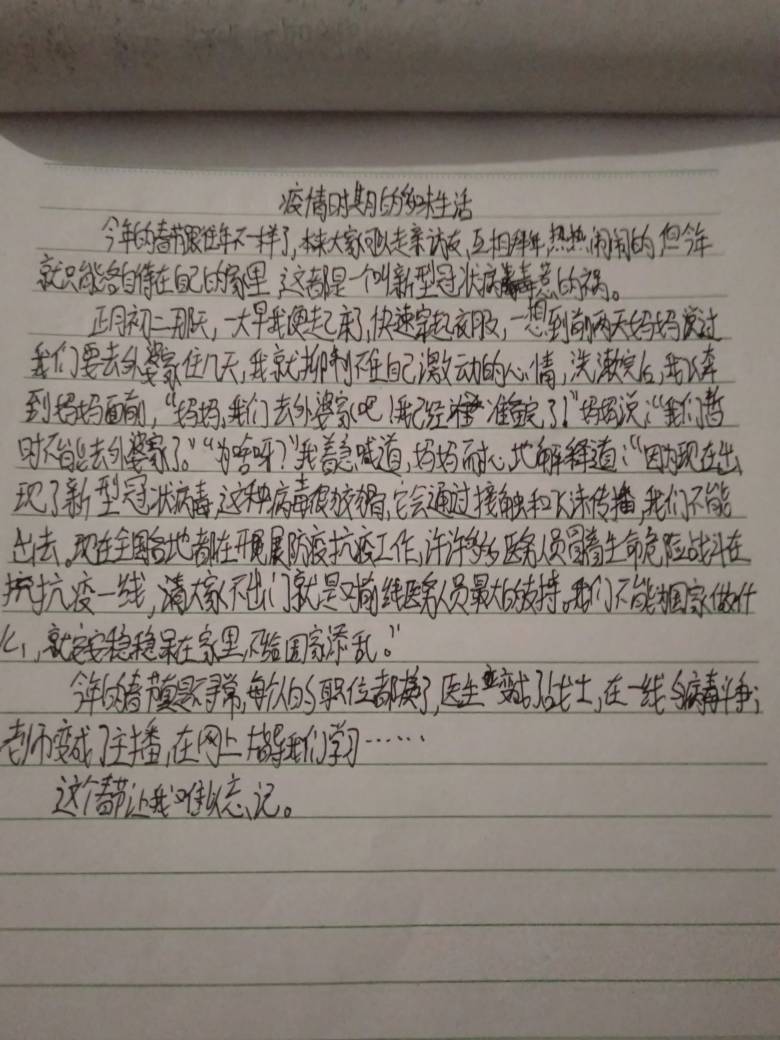 疫情时期的多味生活
今年的春节跟往年不一样了,本来大家可以走亲访友,互相拜年,热热闹闹的,但今年
就只能各自待在自己的家里,这都是一个叫新型冠状病毒惹的祸。
正月初二那天,一大早我便起床了,快速穿起衣服,一想到前两天妈妈说过
我们要去外婆家住几天,我就抑制不住自己激动的心情,洗漱完后,我飞奔
到妈妈面前,“妈妈,我们去外婆家吧!我已经准备完了!”妈妈说:“我们暂
时不能去外婆家了。”“为啥呀?”我着急喊道,妈妈耐心地解释道:“因为现在出
现了新型冠状病毒,这种病毒很狡猾,它会通过接触和飞沫传播,我们不能
出去。现在全国各地都在开展防疫抗疫工作,许许多多医务人员冒着生命危险战斗在
抗疫一线,请大家不出门就是对前线医务人员最大的支持。我们不能为国家做什
么,就安安稳稳呆在家里,不给国家添乱。”
今年的春节真是不寻常,每个人的职位都换了,医生变成了战士,在一线与病毒斗争;
老师变成了主播,在网上指导我们学习……
这个春节让我难以忘记。